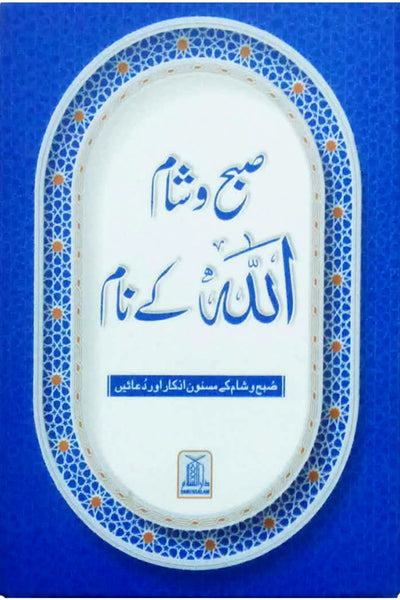 صبح و شام
اللہ کے نام
صُبح و شام کے مسنون اذکار اور دُعائیں
دارالسلام
DARUSSALAM